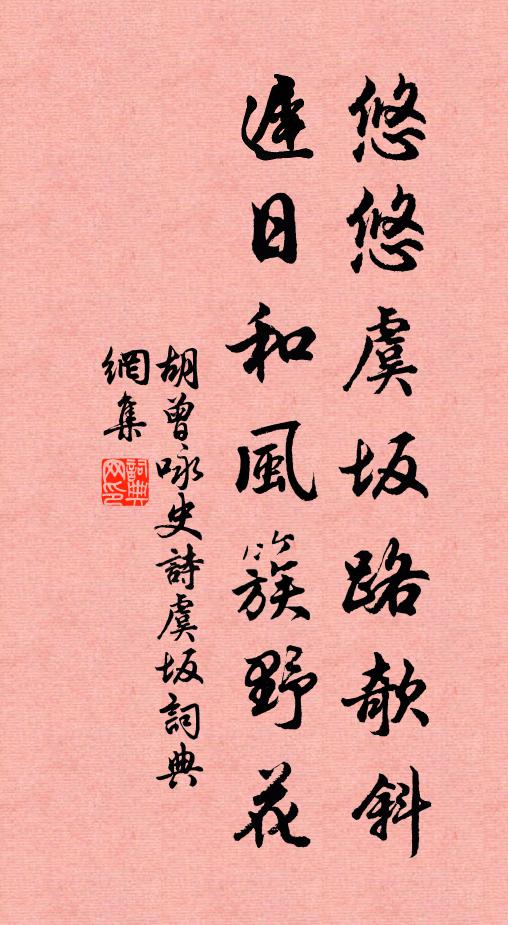 悠悠虞坂路欹斜
遲日和風簇野花
胡曾咏史詩虞坂詞典
網集
詞典
網印